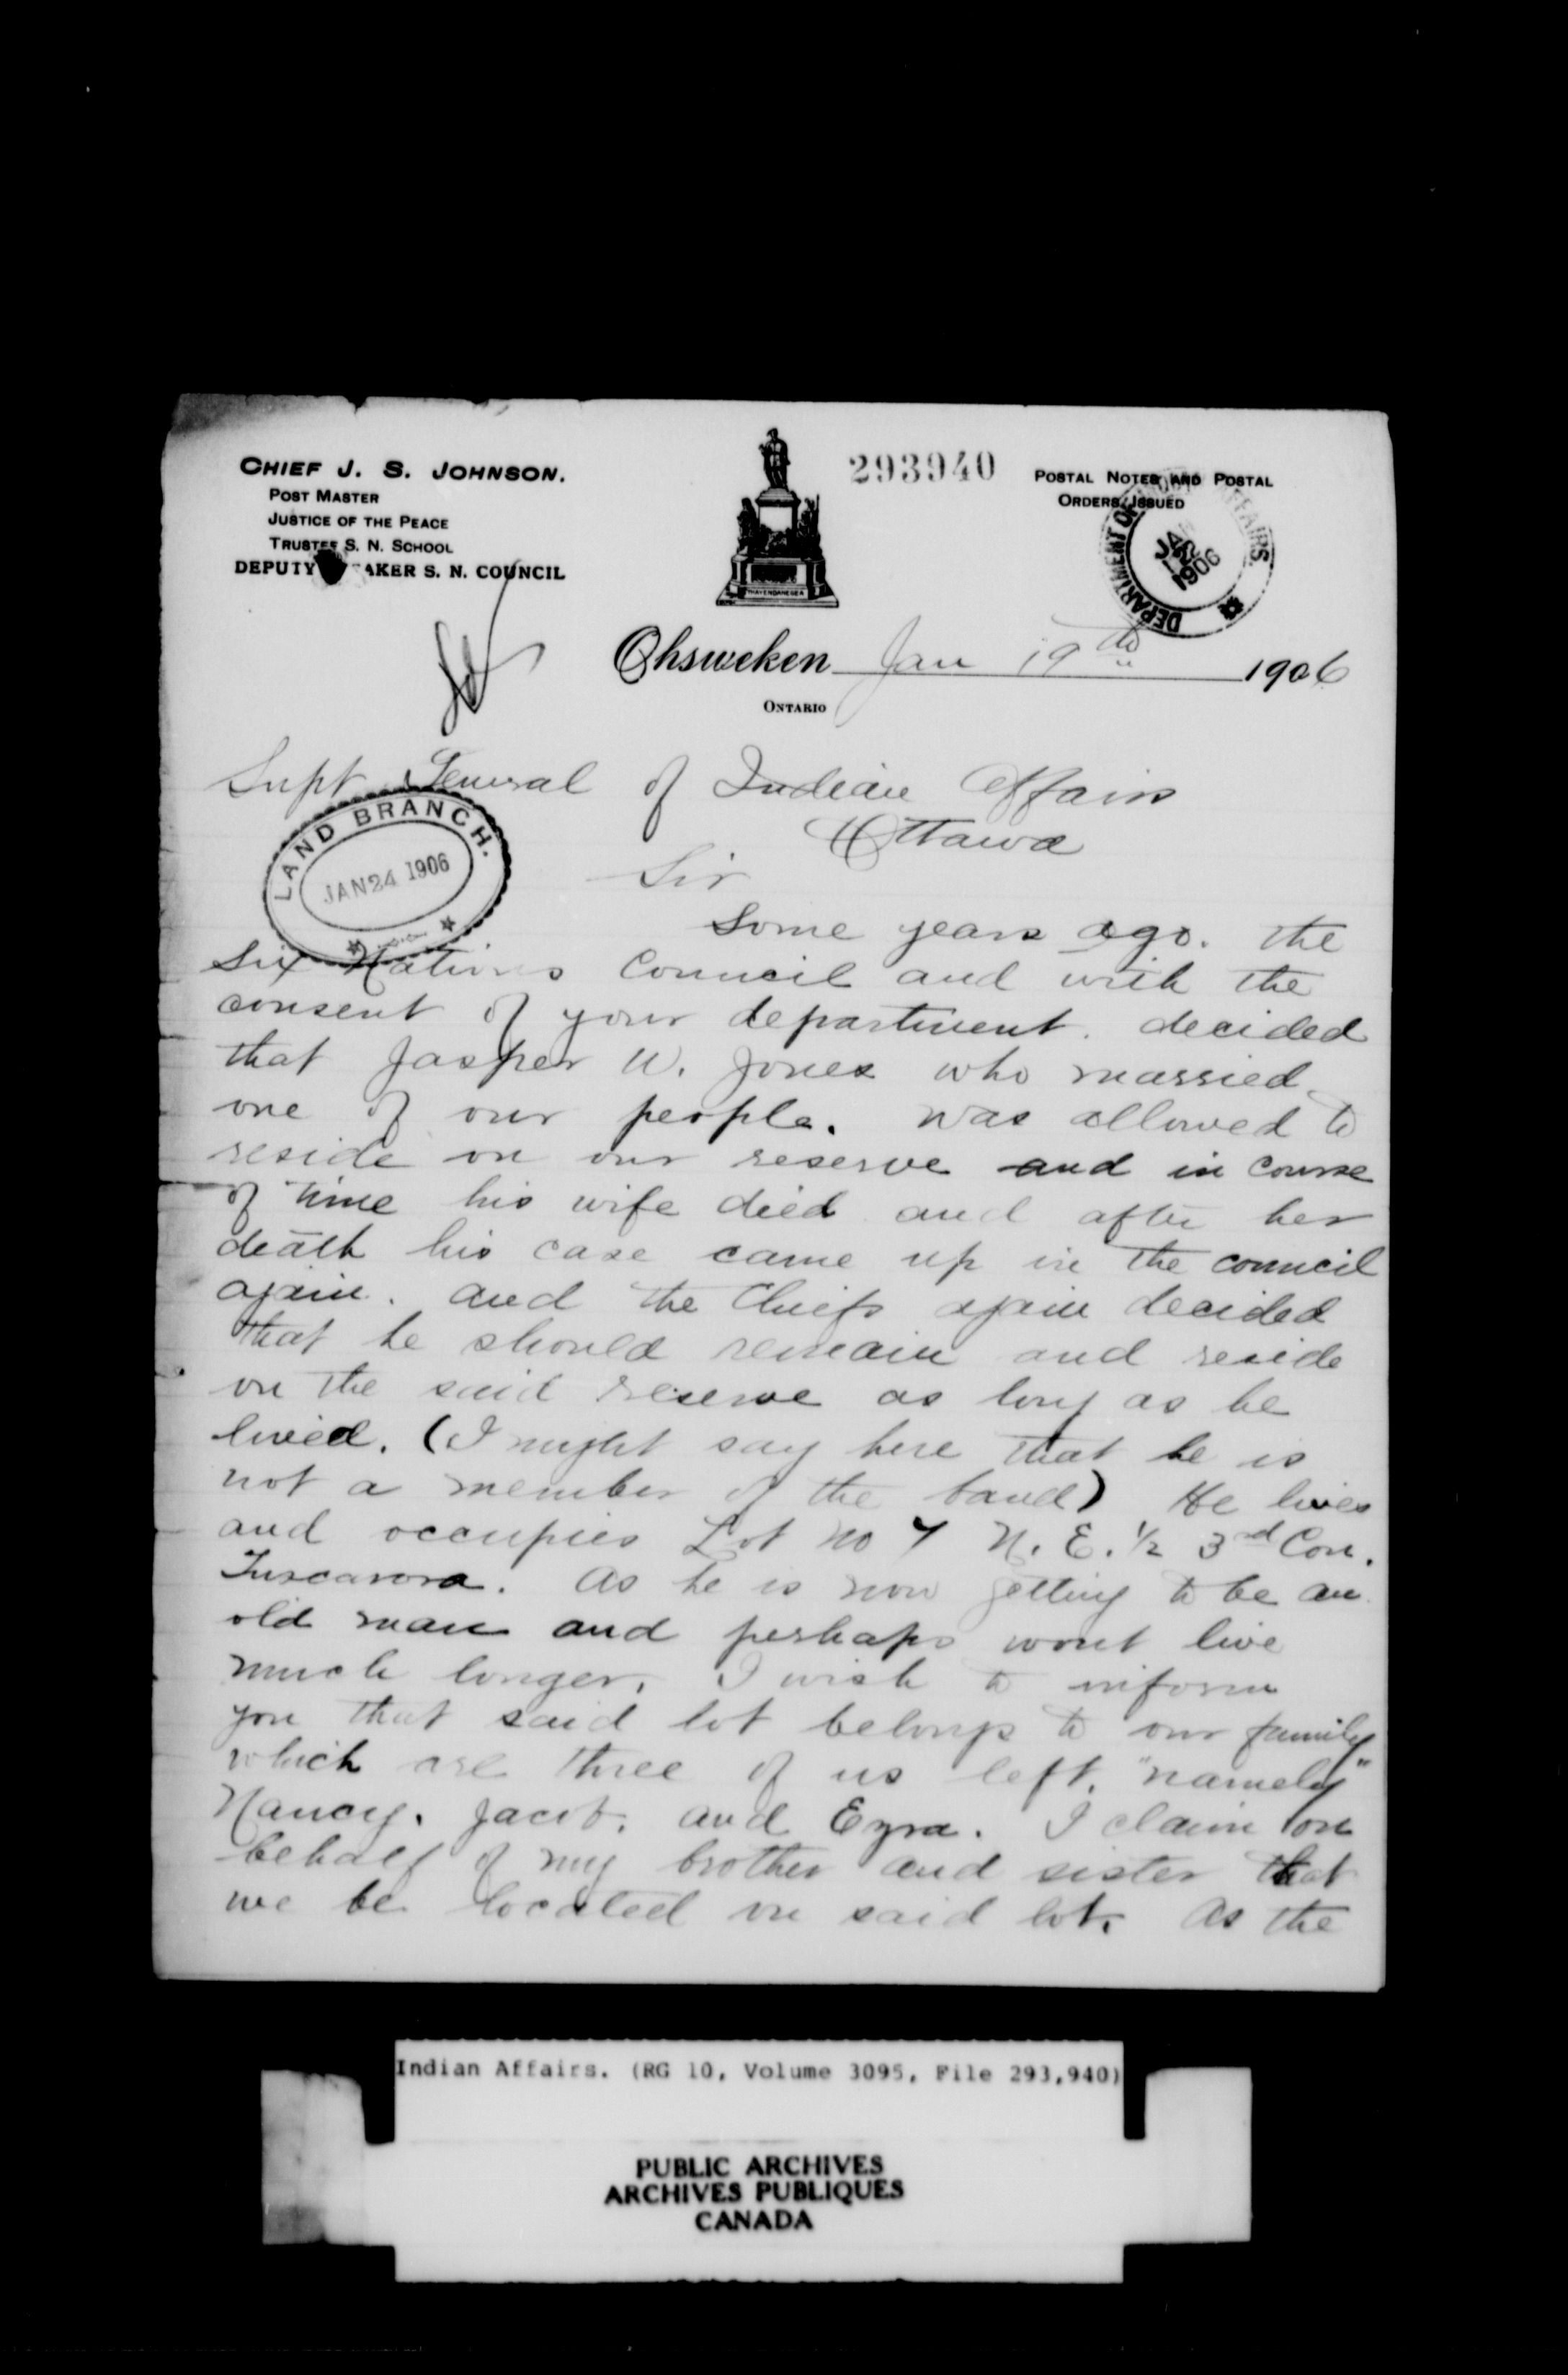 CHIEF J. S. JOHNSON.
POST MASTER
JUSTICE OF THE PEACE
TRUSTEE S. N. SCHOOL
DEPUTY AKER S. N. COUNCIL
293940
POSTAL NOTES AND POSTAL
ORDERS ISSUED
DEPARTMENT OF AFFAIRS.
JAN 1906
THAYENDANEGEA
Ohsweken Jan 19th 1906
ONTARIO
Supt General of Indian Affairs
Ottawa
LAND BRANCH.
JAN 24 1906
Sir
Some years ago. the
Six Nations Council and with the
consent of your department. decided
that Jasper W. Jones who married
one of our people. was allowed to
reside on our reserve and in course
of time his wife died and after her
death his case came up in the council
again. and the Chiefs again decided
that he should remain and reside
on the said reserve as long as he
lived. (I might say here that he is
not a member of the band) He lives
and occupies Lot no 7 N. E. 1/2 3rd Con.
Tuscarora. As he is now getting to be an
old man and perhaps wont live
much longer. I wish to inform
you that said lot belongs to our family
which are three of us left. "namely"
Nancy. Jacob. and Ezra. I claim on
behalf of my brother and sister that
we be located on said lot. As the
Indian Affairs. (RG 10, Volume 3095, File 293,940)
PUBLIC ARCHIVES
ARCHIVES PUBLIQUES
CANADA